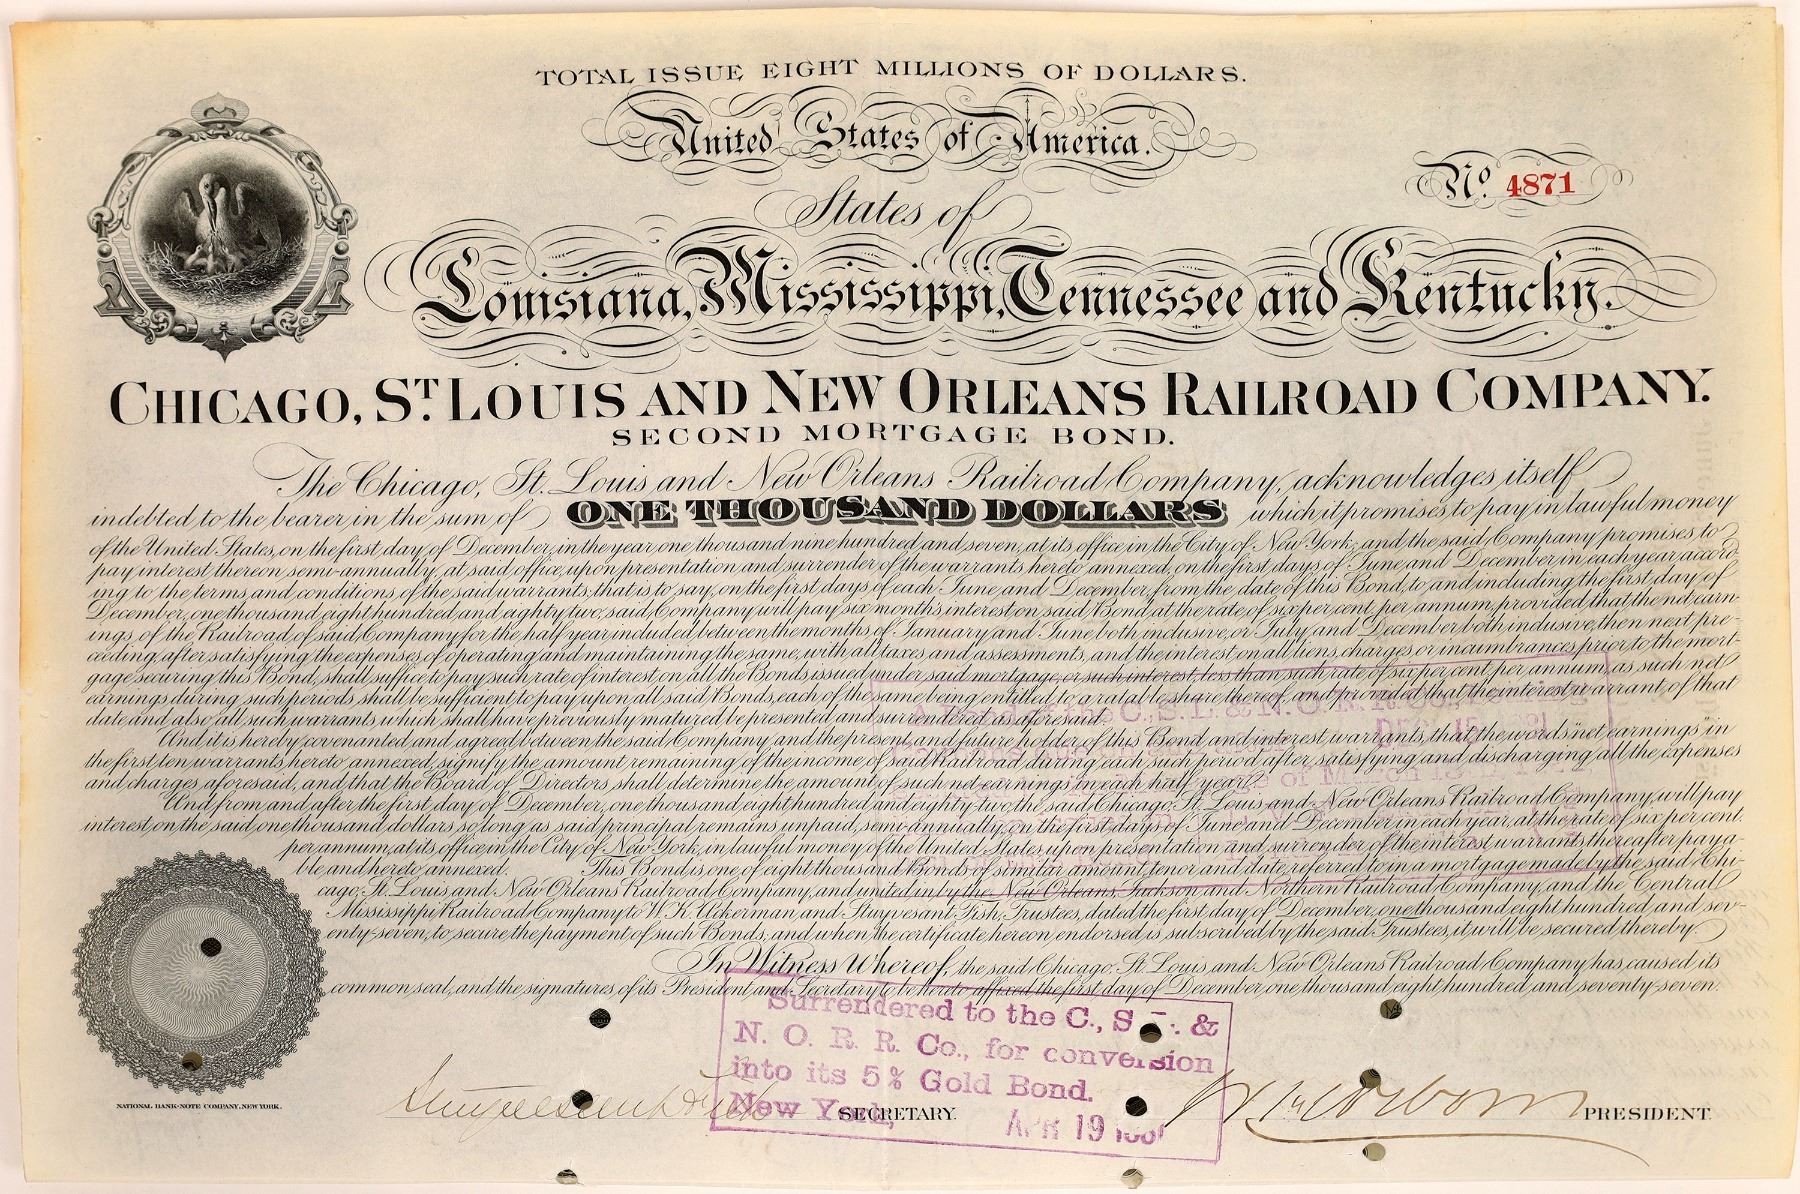 TOTAL ISSUE EIGHT MILLIONS OF DOLLARS.
United States of America.
No. 4871
States of
Louisiana, Mississippi, Tennessee and Kentucky.
CHICAGO, ST. LOUIS AND NEW ORLEANS RAILROAD COMPANY.
SECOND MORTGAGE BOND.
The Chicago, St. Louis and New Orleans Railroad Company, acknowledges itself
indebted to the bearer in the sum of ONE THOUSAND DOLLARS which it promises to pay in lawful money
of the United States, on the first day of December, in the year one thousand nine hundred and seven, at its office in the City of New York; and the said Company promises to
pay interest thereon semi-annually, at said office, upon presentation and surrender of the warrants hereto annexed, on the first days of June and December in each year, accord-
ing to the terms, and conditions of the said warrants; that is to say, on the first days of each June and December, from the date of this Bond, to and including the first day of
December, one thousand eight hundred and eighty two, said Company will pay six months interest on said Bond, at the rate of six per cent. per annum, provided that the net earn-
ings, of the Railroad of said Company for the half year included between the months of January and June both inclusive, or July, and December both inclusive, then next pre-
ceding, after satisfying the expenses of operating and maintaining the same, with all taxes and assessments, and the interest on all liens charges or incumbrances prior to the mort-
gage securing this Bond, shall suffice to pay such rate of interest on all the Bonds issued under said mortgage, or such interest less than such rate of six per cent. per annum, as such net
earnings during such periods shall be sufficient to pay upon all said Bonds, each of the same being entitled to a ratable share thereof, and provided that the interest warrant of that
date and also all such warrants which shall have previously matured be presented and surrendered as aforesaid.
And it is hereby covenanted and agreed between the said Company and the present and future holder of this Bond and interest warrants, that the words "net earnings" in
the first ten warrants, hereto annexed, signify the amount remaining of the income of said Railroad during each such period after satisfying and discharging all the expenses
and charges aforesaid, and that the Board of Directors shall determine the amount of such net earnings in each half year.
And from and after the first day of December, one thousand eight hundred and eighty-two, the said Chicago, St. Louis and New Orleans Railroad Company, will pay
interest, on the said one thousand dollars so long as said principal remains unpaid, semi-annually, on the first days of June and December in each year, at the rate of six per cent.
per annum, at its office in the City of New York, in lawful money of the United States, upon presentation and surrender of the interest warrants, thereafter paya-
ble and hereto annexed. This Bond is one of eight thousand Bonds of similar amount, tenor and date, referred to in a mortgage made by the said Chi-
cago, St. Louis, and New Orleans Railroad Company, and united in by the New Orleans, Jackson and Northern Railroad Company, and the Central
Mississippi Railroad Company to W. K. Ackerman and Stuyvesant Fish, Trustees, dated the first day of December, one thousand eight hundred and sev-
enty-seven, to secure the payment of such Bonds, and when the certificate hereon endorsed is subscribed by the said Trustees, it will be secured thereby.
In Witness Whereof, the said Chicago, St. Louis, and New Orleans Railroad Company has caused its
common seal, and the signatures of its President and Secretary to be hereto affixed the first day of December, one thousand, eight hundred, and seventy-seven.
Surrendered to the C., S. L. &
N. O. R. R. Co., for conversion
into its 5% Gold Bond.
New York,
APR 19
Stuyvesant Fish SECRETARY.
PRESIDENT.
NATIONAL BANK-NOTE COMPANY, NEW YORK.